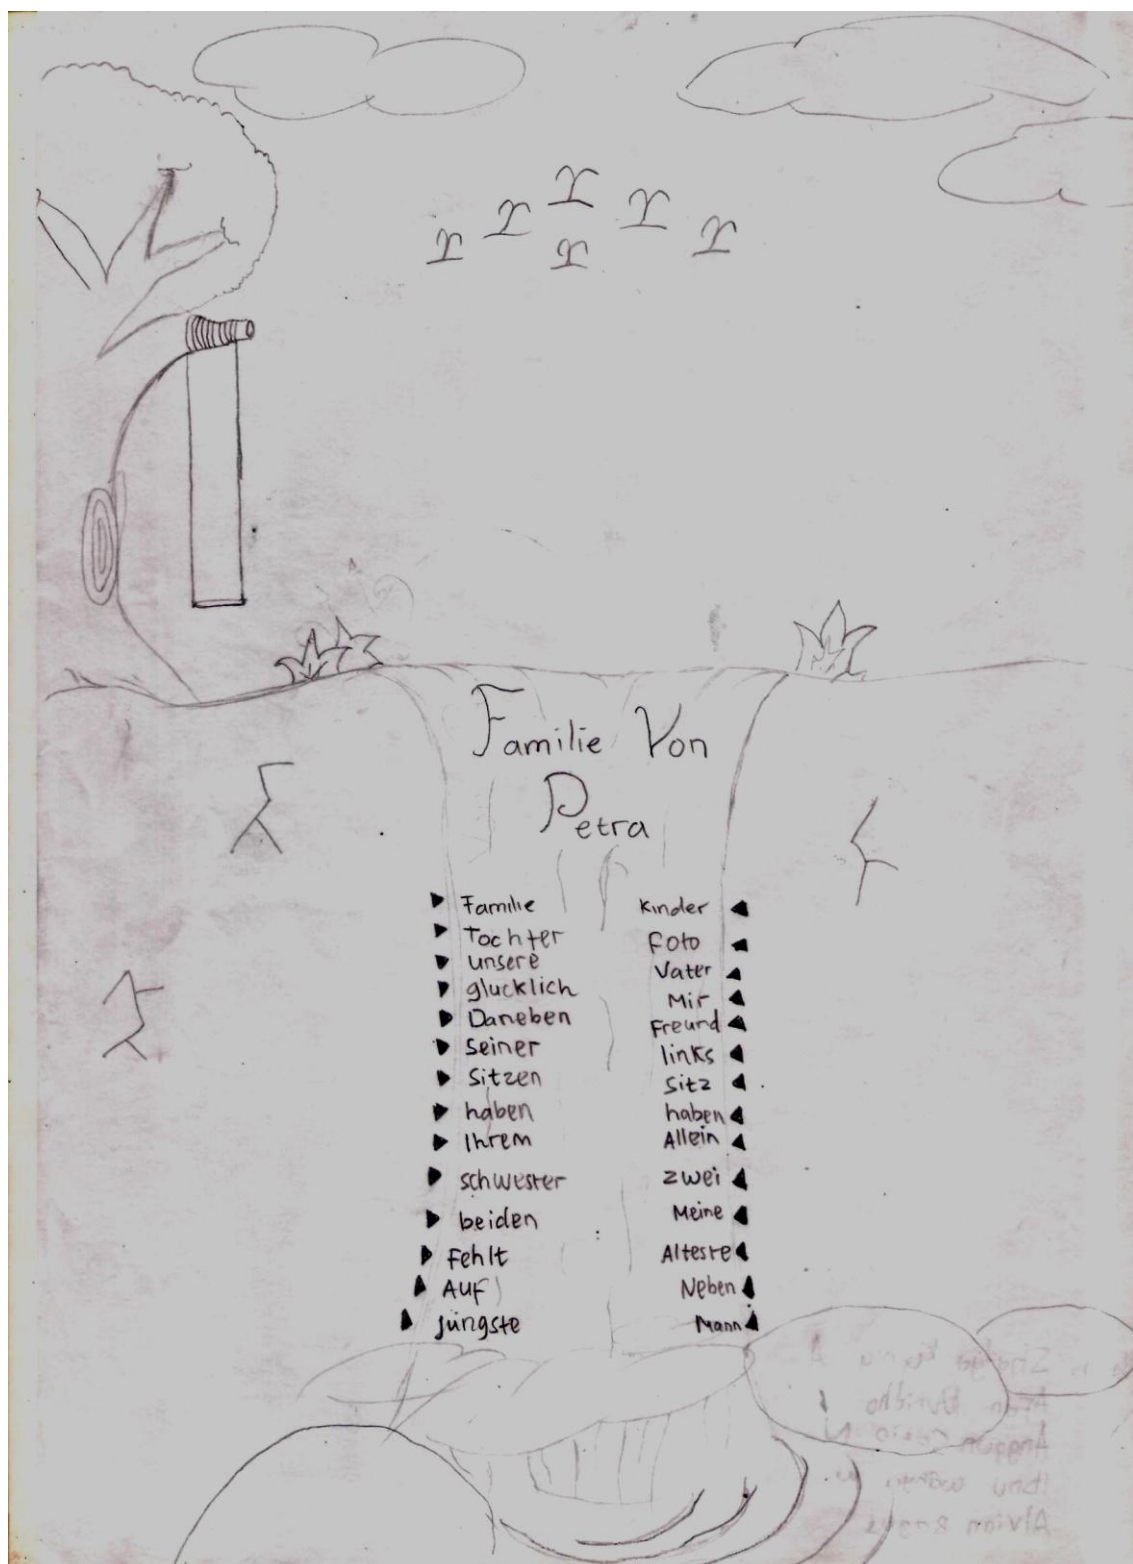 Familie Von
Petra
Familie
Tochter
unsere
glucklich
Daneben
Seiner
Sitzen
haben
Ihrem
schwester
beiden
Fehlt
AUF
jüngste
Kinder
Foto
Vater
Mir
Freund
links
Sitz
haben
Allein
zwei
Meine
Alteste
Neben
Mann